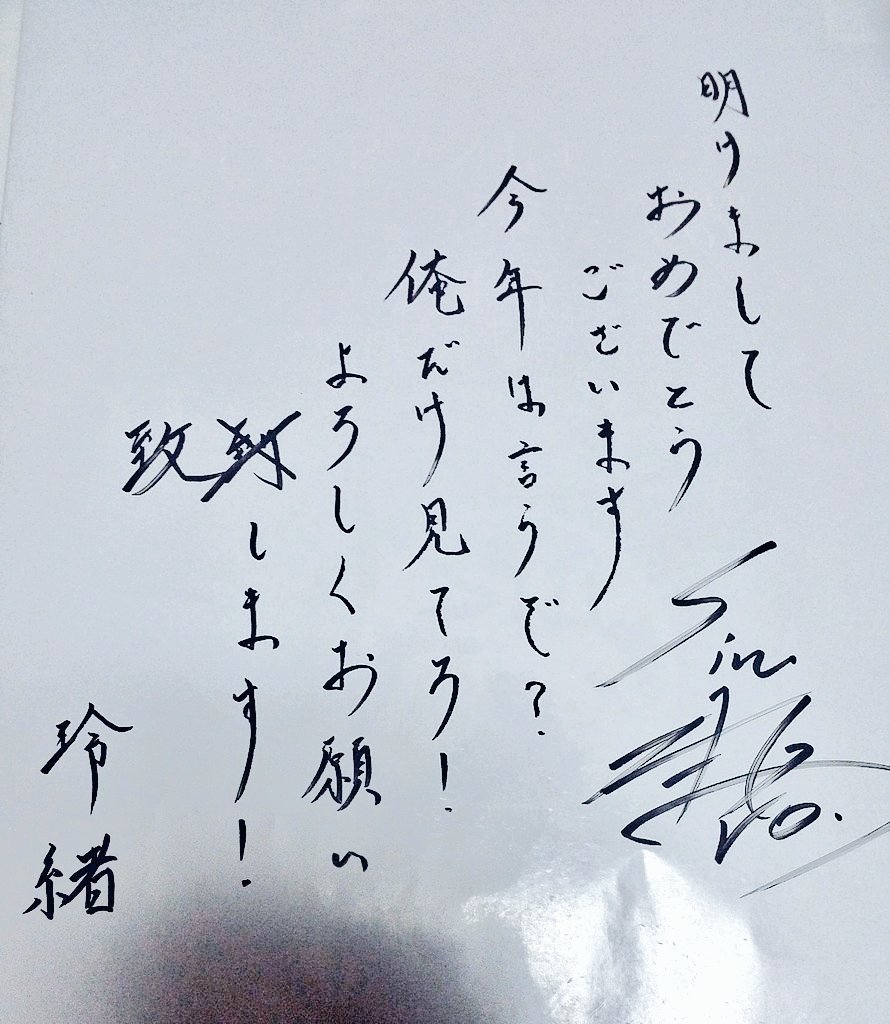 明けまして
おめでとう
ございます
今年は言うで？
俺だけ見てろ！
よろしくお願い
します！
致
玲緒
Sin